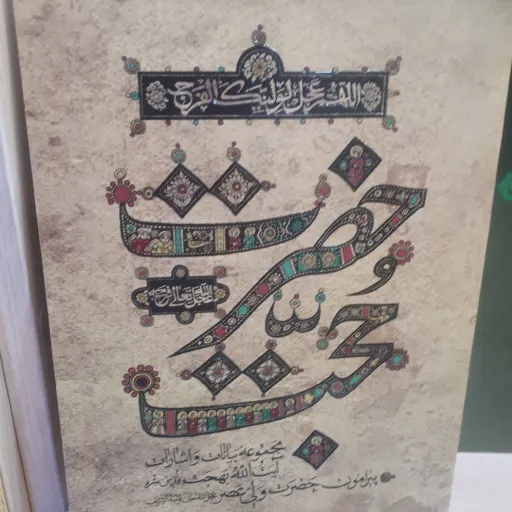 اللهم عجل لولیک الفرج
حضرت
عجل الله تعالی فرجه
حجت
مجموعه بیانات و اشارات
آیت‌الله بهجت قدس سره
پیرامون حضرت ولی عصر